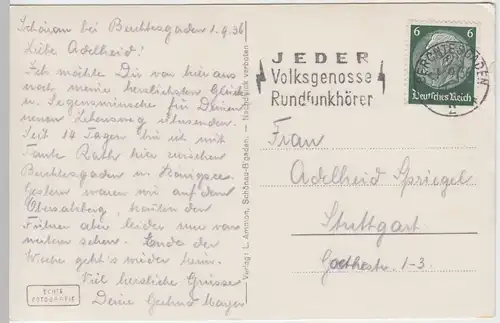 Schönau bei Berchtesgaden 1.9.36
Liebe Adelheid!
Ich möchte Dir von hier aus
noch meine herzlichsten Glück
u. Segenswünsche für Deinen
neuen Lebensweg übersenden.
Seit 14 Tagen bin ich mit
Tante Käthe hier zwischen
Berchtesgaden u. Königssee.
Gestern waren wir auf dem
Obersalzberg, konnten den
Führer aber leider nur von
weitem sehen. Ende der
Woche geht's wieder heim.
Viel herzliche Grüsse
Deine Mayer
ECHTE
FOTOGRAFIE
Verlag: L. Ammon, Schönau-B'gaden. — Nachdruck verboten
JEDER
Volksgenosse
Rundfunkhörer
BERCHTESGADEN
6 6
Deutsches Reich
Frau
Adelheid Spriegel
Stuttgart
Goethestr. 1-3